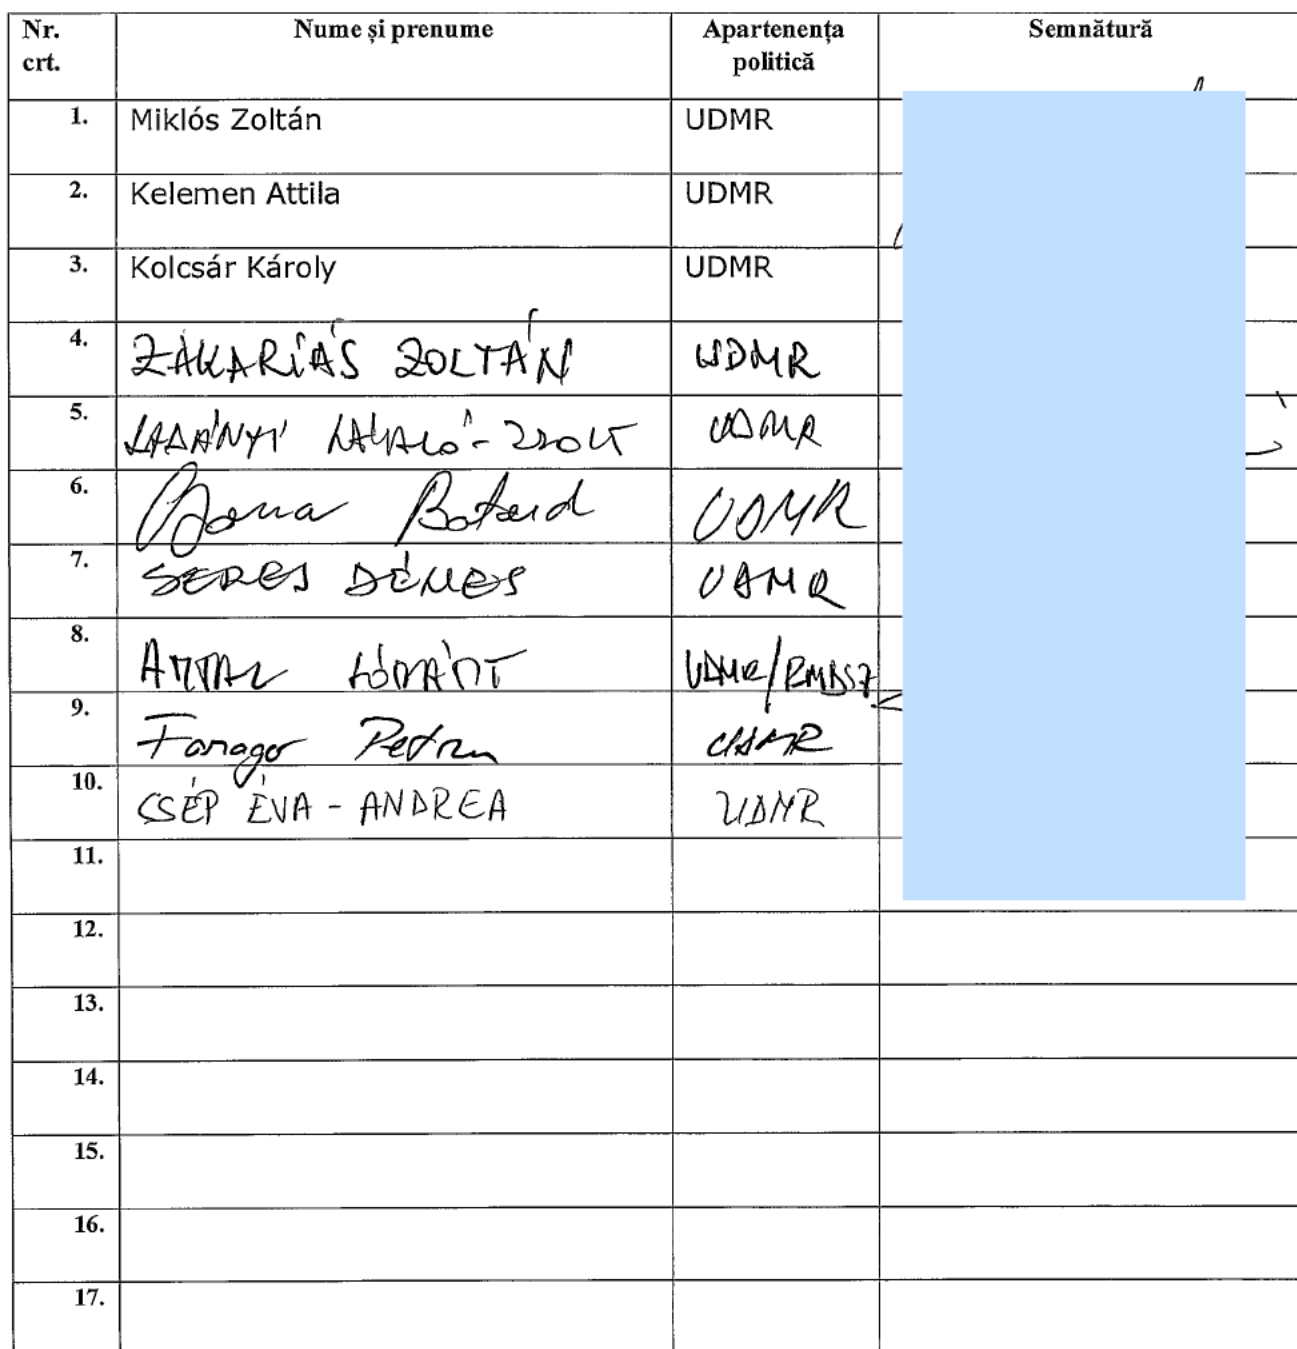 Nr. crt. Nume și prenume Apartenența politică Semnătură
1. Miklós Zoltán UDMR
2. Kelemen Attila UDMR
3. Kolcsár Károly UDMR
4. ZAKARIÁS ZOLTÁN UDMR
5. LADÁNYI LÁSZLÓ-ZSOLT UDMR
6. Botond UDMR
7. SERES DÉNES UDMR
8. ANTAL LÓRÁNT UDMR/RMDSZ
9. Farago Petru UDMR
10. CSÉP ÉVA-ANDREA UDMR
11.
12.
13.
14.
15.
16.
17.